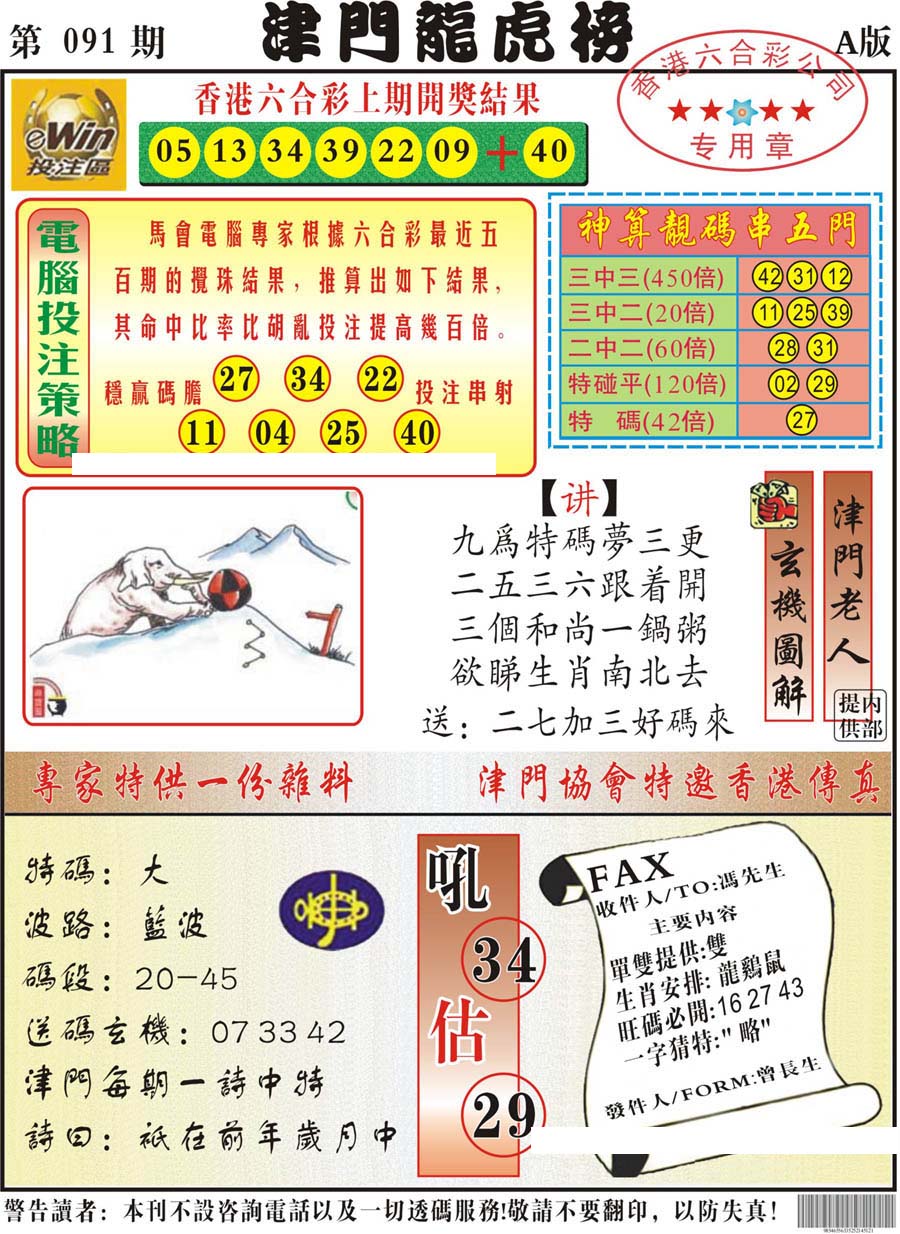 第 091 期
津門龍虎榜
A版
eWin
投注區
香港六合彩上期開獎結果
05 13 34 39 22 09 + 40
香港六合彩公司
★★★★
专用章
電腦投注策略
馬會電腦專家根據六合彩最近五
百期的攪珠結果，推算出如下結果，
其命中比率比胡亂投注提高幾百倍。
穩贏碼膽 27 34 22 投注串射
11 04 25 40
神算靚碼串五門
三中三(450倍) 42 31 12
三中二(20倍) 11 25 39
二中二(60倍) 28 31
特碰平(120倍) 02 29
特 碼(42倍) 27
【讲】
九爲特碼夢三更
二五三六跟着開
三個和尚一鍋粥
欲睇生肖南北去
送：二七加三好碼來
玄機圖解
津門老人
内部提供
專家特供一份雜料
津門協會特邀香港傳真
特碼：大
波路：藍波
碼段：20-45
送碼玄機：07 33 42
津門每期一詩中特
詩曰：祇在前年歲月中
吼
34
估
29
FAX
收件人/TO:馮先生
主要内容
單雙提供:雙
生肖安排:龍鷄鼠
旺碼必開:16 27 43
一字猜特:"略"
發件人/FORM:曾長生
警告讀者：本刊不設咨詢電話以及一切透碼服務!敬請不要翻印，以防失真!